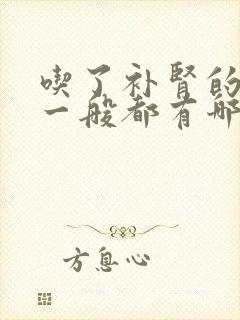 喫了补肾的
一般都有哪
方息心